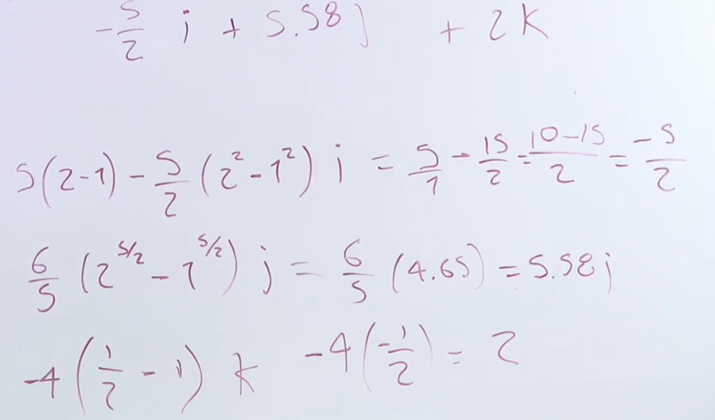 -5/2 i + 5.58j + 2k
5(2-1) - 5/2 (2² - 1²) i = 5/1 - 15/2 = 10-15/2 = -5/2
6/5 (2^5/2 - 1^5/2) j = 6/5 (4.65) = 5.58j
-4(1/2 - 1) k -4(-1/2) = 2